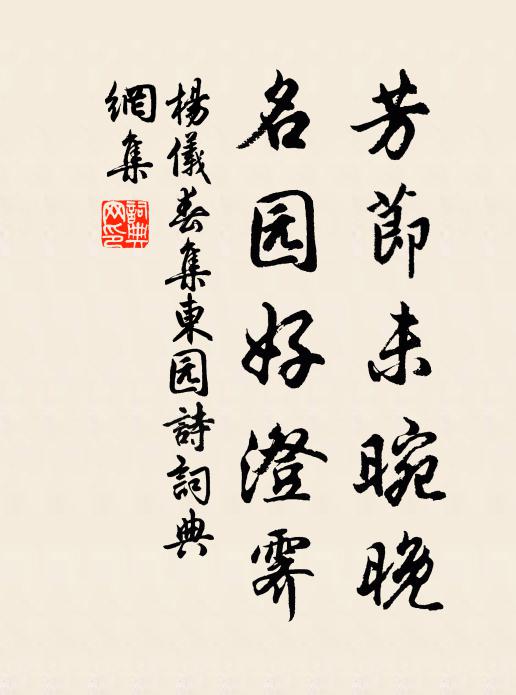 芳節未晼晚
名园好澄霁
楊儀春集東园詩詞典
網集
詞典
网印